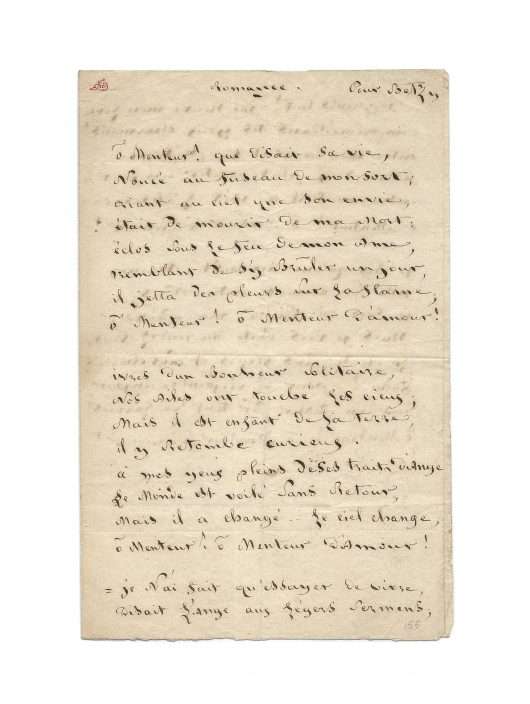 Romance. Pour Betzy
ô Menteur! qui disait sa vie,
Nouée au fuseau de mon sort;
criant au ciel que son envie,
était de mourir de ma Mort;
éclos sous le feu de mon ame,
tremblant de s'y Brûler un jour,
il jetta des pleurs sur la flâme,
ô Menteur! ô Menteur d'amour!
ivres d'un Bonheur solitaire,
Nos ailes ont touché les cieux,
Mais il est enfant de la terre
il y Retombe curieux.
à mes yeux pleins de ses traits d'Ange
Le Monde est voilé sans Retour,
Mais il a changé... Le ciel change,
ô Menteur! ô Menteur d'Amour!
= je N'ai fait qu'essayer de vivre,
Disait l'Ange aux légers sermens,
155